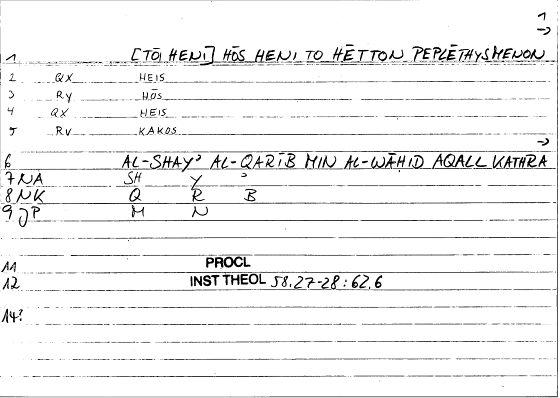 1
->
1 [TŌI HENI] HŌS HENI TO HĒTTON PEPLĒTHYSMENON
2 QX HEIS
3 Ry HŌS
4 QX HEIS
5 RV KAKOS
->
6 AL-SHAY' AL-QARĪB MIN AL-WĀHID AQALL KATHRA
7 NA SH Y '
8 NK Q R B
9 JP M N
11 PROCL
12 INST THEOL 58.27-28:62.6
14?